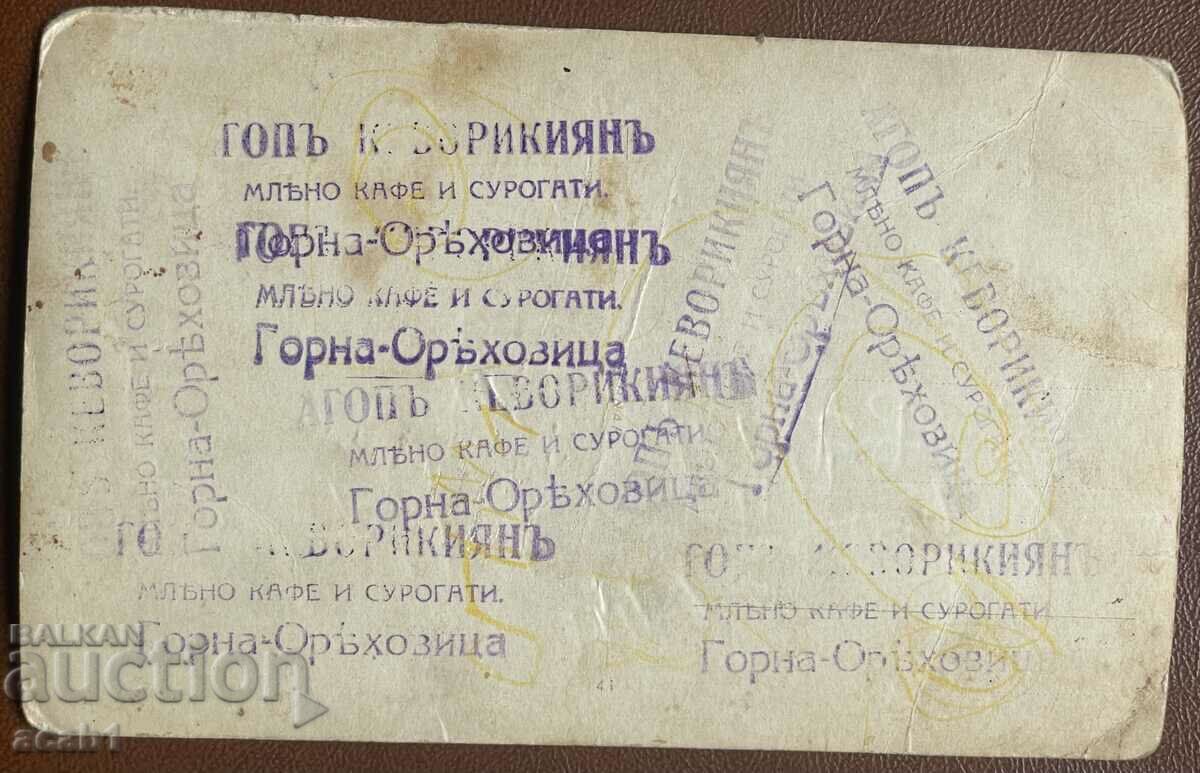 ГОПЪ КЕВОРИКИЯНЪ
МЛѢНО КАФЕ И СУРОГАТИ.
Горна-Орѣховица
МЛѢНО КАФЕ И СУРОГАТИ.
Горна-Орѣховица
АГОПЪ КЕВОРИКИЯНЪ
МЛѢНО КАФЕ И СУРОГАТИ.
Горна-Орѣховица
КЕВОРИКИЯНЪ
МЛѢНО КАФЕ И СУРОГАТИ.
Горна-Орѣховица
КЕВОРИКИЯНЪ
И
Горна-Орѣх
АГОПЪ КЕВОРИКИ
МЛѢНО КАФЕ И СУРОГАТИ
Горна-Орѣховица
КЕВОРИКИЯНЪ
МЛѢНО КАФЕ И СУРОГАТИ.
Горна-Орѣховица
ГОПЪ КЕВОРИКИЯНЪ
МЛѢНО КАФЕ И СУРОГАТИ
Горна-Орѣховиц
41
BALKAN
auction
acab1